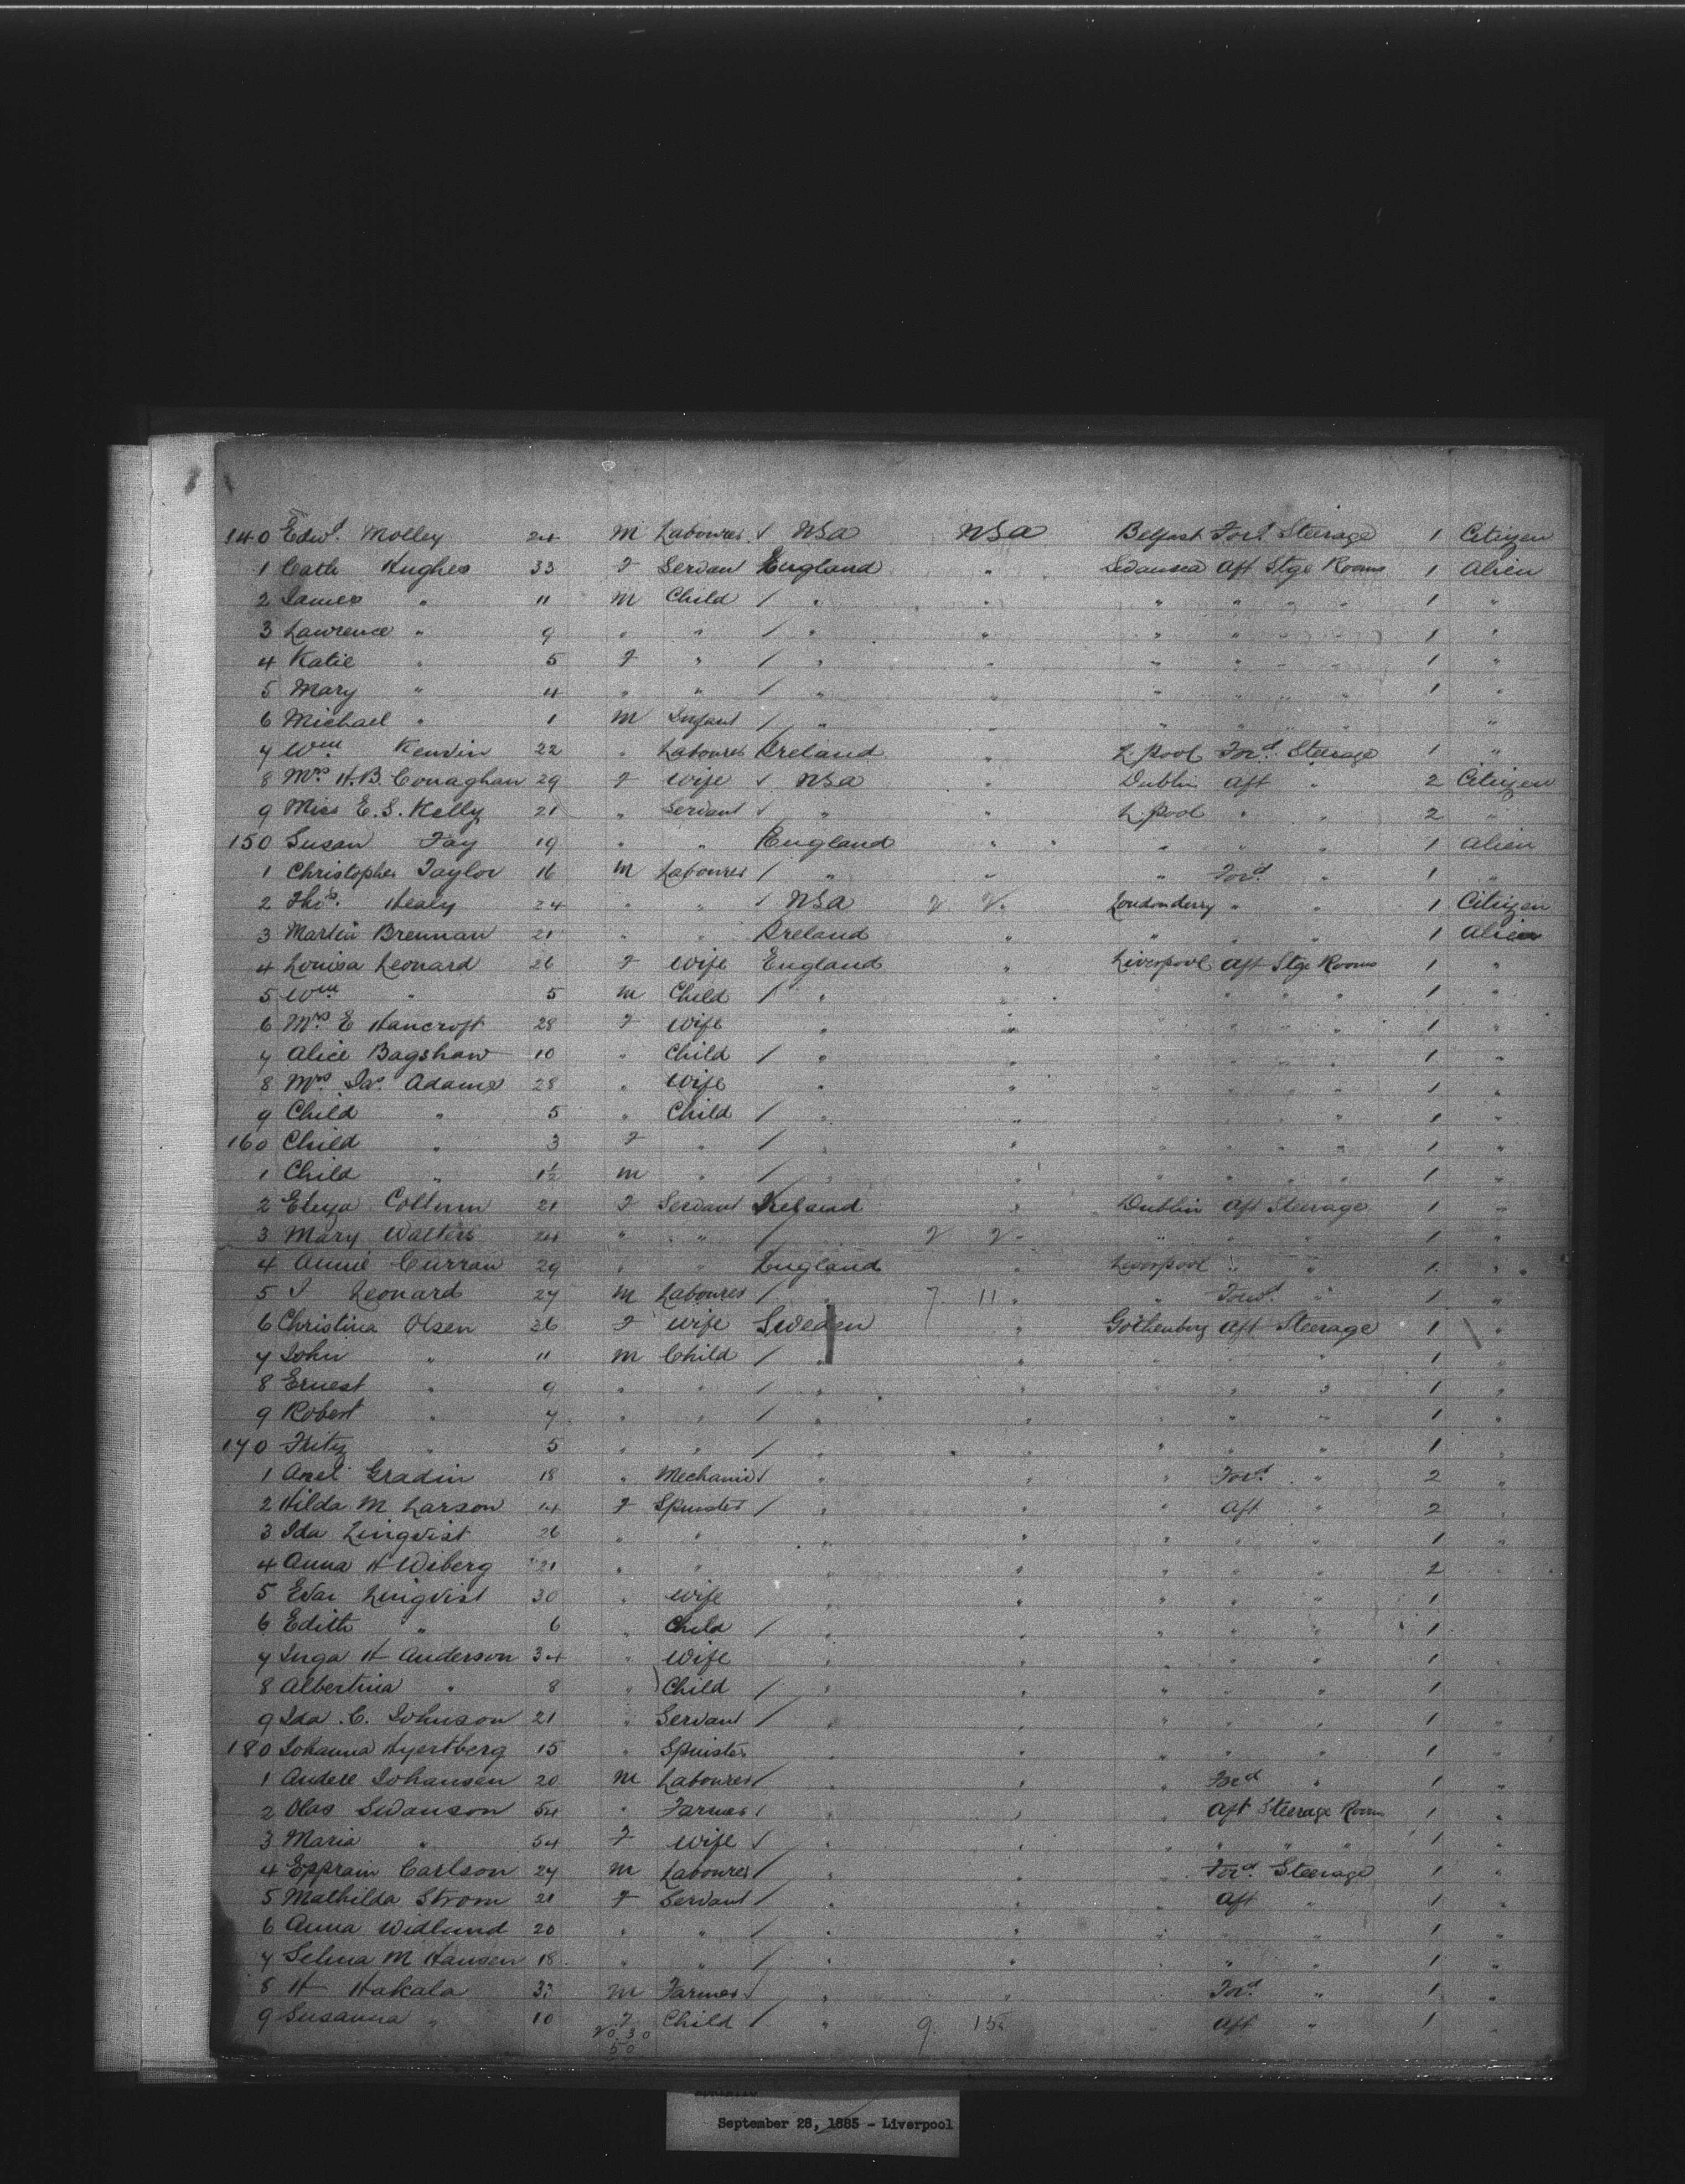 140 Edwd. Molley 24 M Labourer √ USA USA Belfast Ford Steerage 1 Citizen
1 Cath Hughes 33 F Servant England " Swansea Aft Stge Rooms 1 Alien
2 James " 11 M Child / " " " " " " 1 "
3 Lawrence " 9 " " / " " " " " " 1 "
4 Katie " 5 F " / " " " " " " 1 "
5 Mary " 4 " " / " " " " " " 1 "
6 Michael " 1 M Infant / " " " " " " "
7 Wm Kenvin 22 " Labourer Ireland " L'pool Ford. Steerage 1 "
8 Mrs H.B. Conaghan 29 F Wife √ USA " Dublin Aft " 2 Citizen
9 Miss E.S. Kelly 21 " Servant √ " " L'pool " " 2 "
150 Susan Fay 19 " " England " " " " 1 Alien
1 Christopher Taylor 16 M Labourer / " " " Ford. " 1 "
2 Thos. Healy 24 " " √ USA 2 2 " Londonderry " " 1 Citizen
3 Martin Brennan 21 " " Ireland " " " " 1 Alien
4 Louisa Leonard 26 F Wife England " Liverpool Aft Stge Rooms 1 "
5 Wm " 5 M Child / " " " " " " 1 "
6 Mrs E Hancroft 28 F Wife " " " " " " 1 "
7 Alice Bagshaw 10 " Child / " " " " " " 1 "
8 Mrs Jas. Adams 28 " Wife " " " " " " 1 "
9 Child " 5 " Child / " " " " " " 1 "
160 Child " 3 F " / " " " " " " 1 "
1 Child " 1½ M " / " " " " " " 1 "
2 Eliza Collum 21 F Servant Ireland " Dublin Aft Steerage 1 "
3 Mary Walters 24 " " / 2 2 " " " " 1 "
4 Annie Curran 29 " " England " Liverpool " " 1 "
5 J Leonard 27 M Labourer / " 7 11 " " Ford. " 1 "
6 Christina Olsen 36 F Wife Sweden " Gothenberg Aft Steerage 1 "
7 John " 11 M Child / " " " " " 1 "
8 Ernest " 9 " " / " " " " " 1 "
9 Robert " 7 " " / " " " " " 1 "
170 Fritz " 5 " " / " " " " " 1 "
1 Axel Gradin 18 " Mechanic √ " " " Ford. " 2 "
2 Hilda M Larson 14 F Spinster / " " " Aft " 2 "
3 Ida Linqvist 26 " " " " " " " 1 "
4 Anna H Wiberg 21 " " " " " " " 2 "
5 Linqvist 30 " Wife " " " " " 1
6 Edith " 6 " Child / " " " " " 1
7 Inga H Anderson 34 " Wife " " " " " 1
8 Albertina " 8 " Child / " " " " " 1
9 Ida C. Johnson 21 " Servant / " " " " " 1 "
180 Johanna Hjertberg 15 " Spinster " " " " " 1 "
1 Johansen 20 M Labourer / " " " Ford " 1 "
2 Olas Swanson 54 " Farmer / " " " Aft Steerage Room 1 "
3 Maria " 54 F Wife √ " " " " " 1 "
4 Carlson 27 M Labourer / " " " Ford. Steerage 1 "
5 Mathilda Strom 21 F Servant / " " " Aft " 1 "
6 Anna Widlund 20 " " / " " " " " 1 "
7 Selma M Hansen 18 " " / " " " " " 1 "
8 H Hakala M Farmer √ " " Ford. " 1 "
9 Susanna " 10 F Child / " 9 15 Aft " 1 "
20 30
50
September 28, 1885 - Liverpool